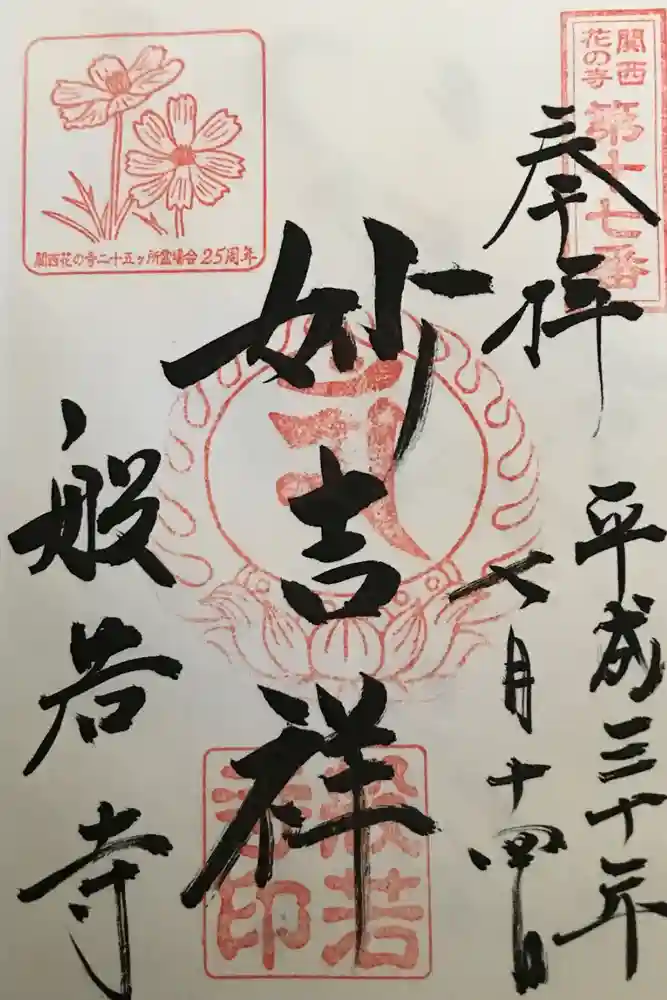 関西
花の寺
第十七番
奉拝
平成三十年
七月十四日
妙吉祥
般若寺
関西花の寺二十五ヶ所霊場会25周年
般若
寺印